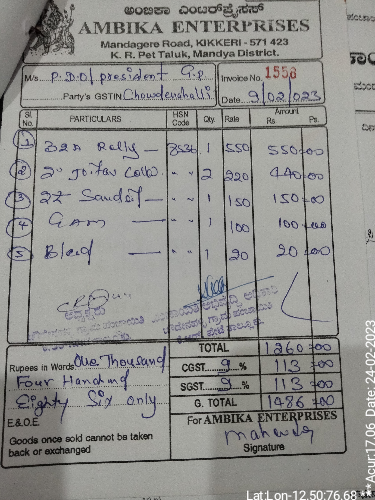 ಅಂಬಿಕಾ ಎಂಟರ್‌ಪ್ರೈಸಸ್
AMBIKA ENTERPRISES
Mandagere Road, KIKKERI - 571 423
K. R. Pet Taluk, Mandya District.
M/s P.D.O/president G.P
Invoice No. 1558
Party's GSTIN Chowdenahalli
Date 9/02/2023
Sl. No. PARTICULARS HSN Code Qty. Rate Amount Rs. Ps.
1 Rally 8536 1 550 550=00
2 2" 〃 〃 2 220 440=00
3 〃 〃 1 150 150=00
4 Gam 〃 〃 1 100 100=00
5 Blead 〃 〃 1 20 20=00
TOTAL 1260=00
Rupees in Words: One Thousand
CGST 9 % 113=00
Four Handred
SGST 9 % 113=00
Eighty Six only
G. TOTAL 1486=00
E.&O.E.
For AMBIKA ENTERPRISES
Goods once sold cannot be taken
back or exchanged
Signature
Lat:Lon-12.50:76.68
Acur:17.06 Date: 24-02-2023